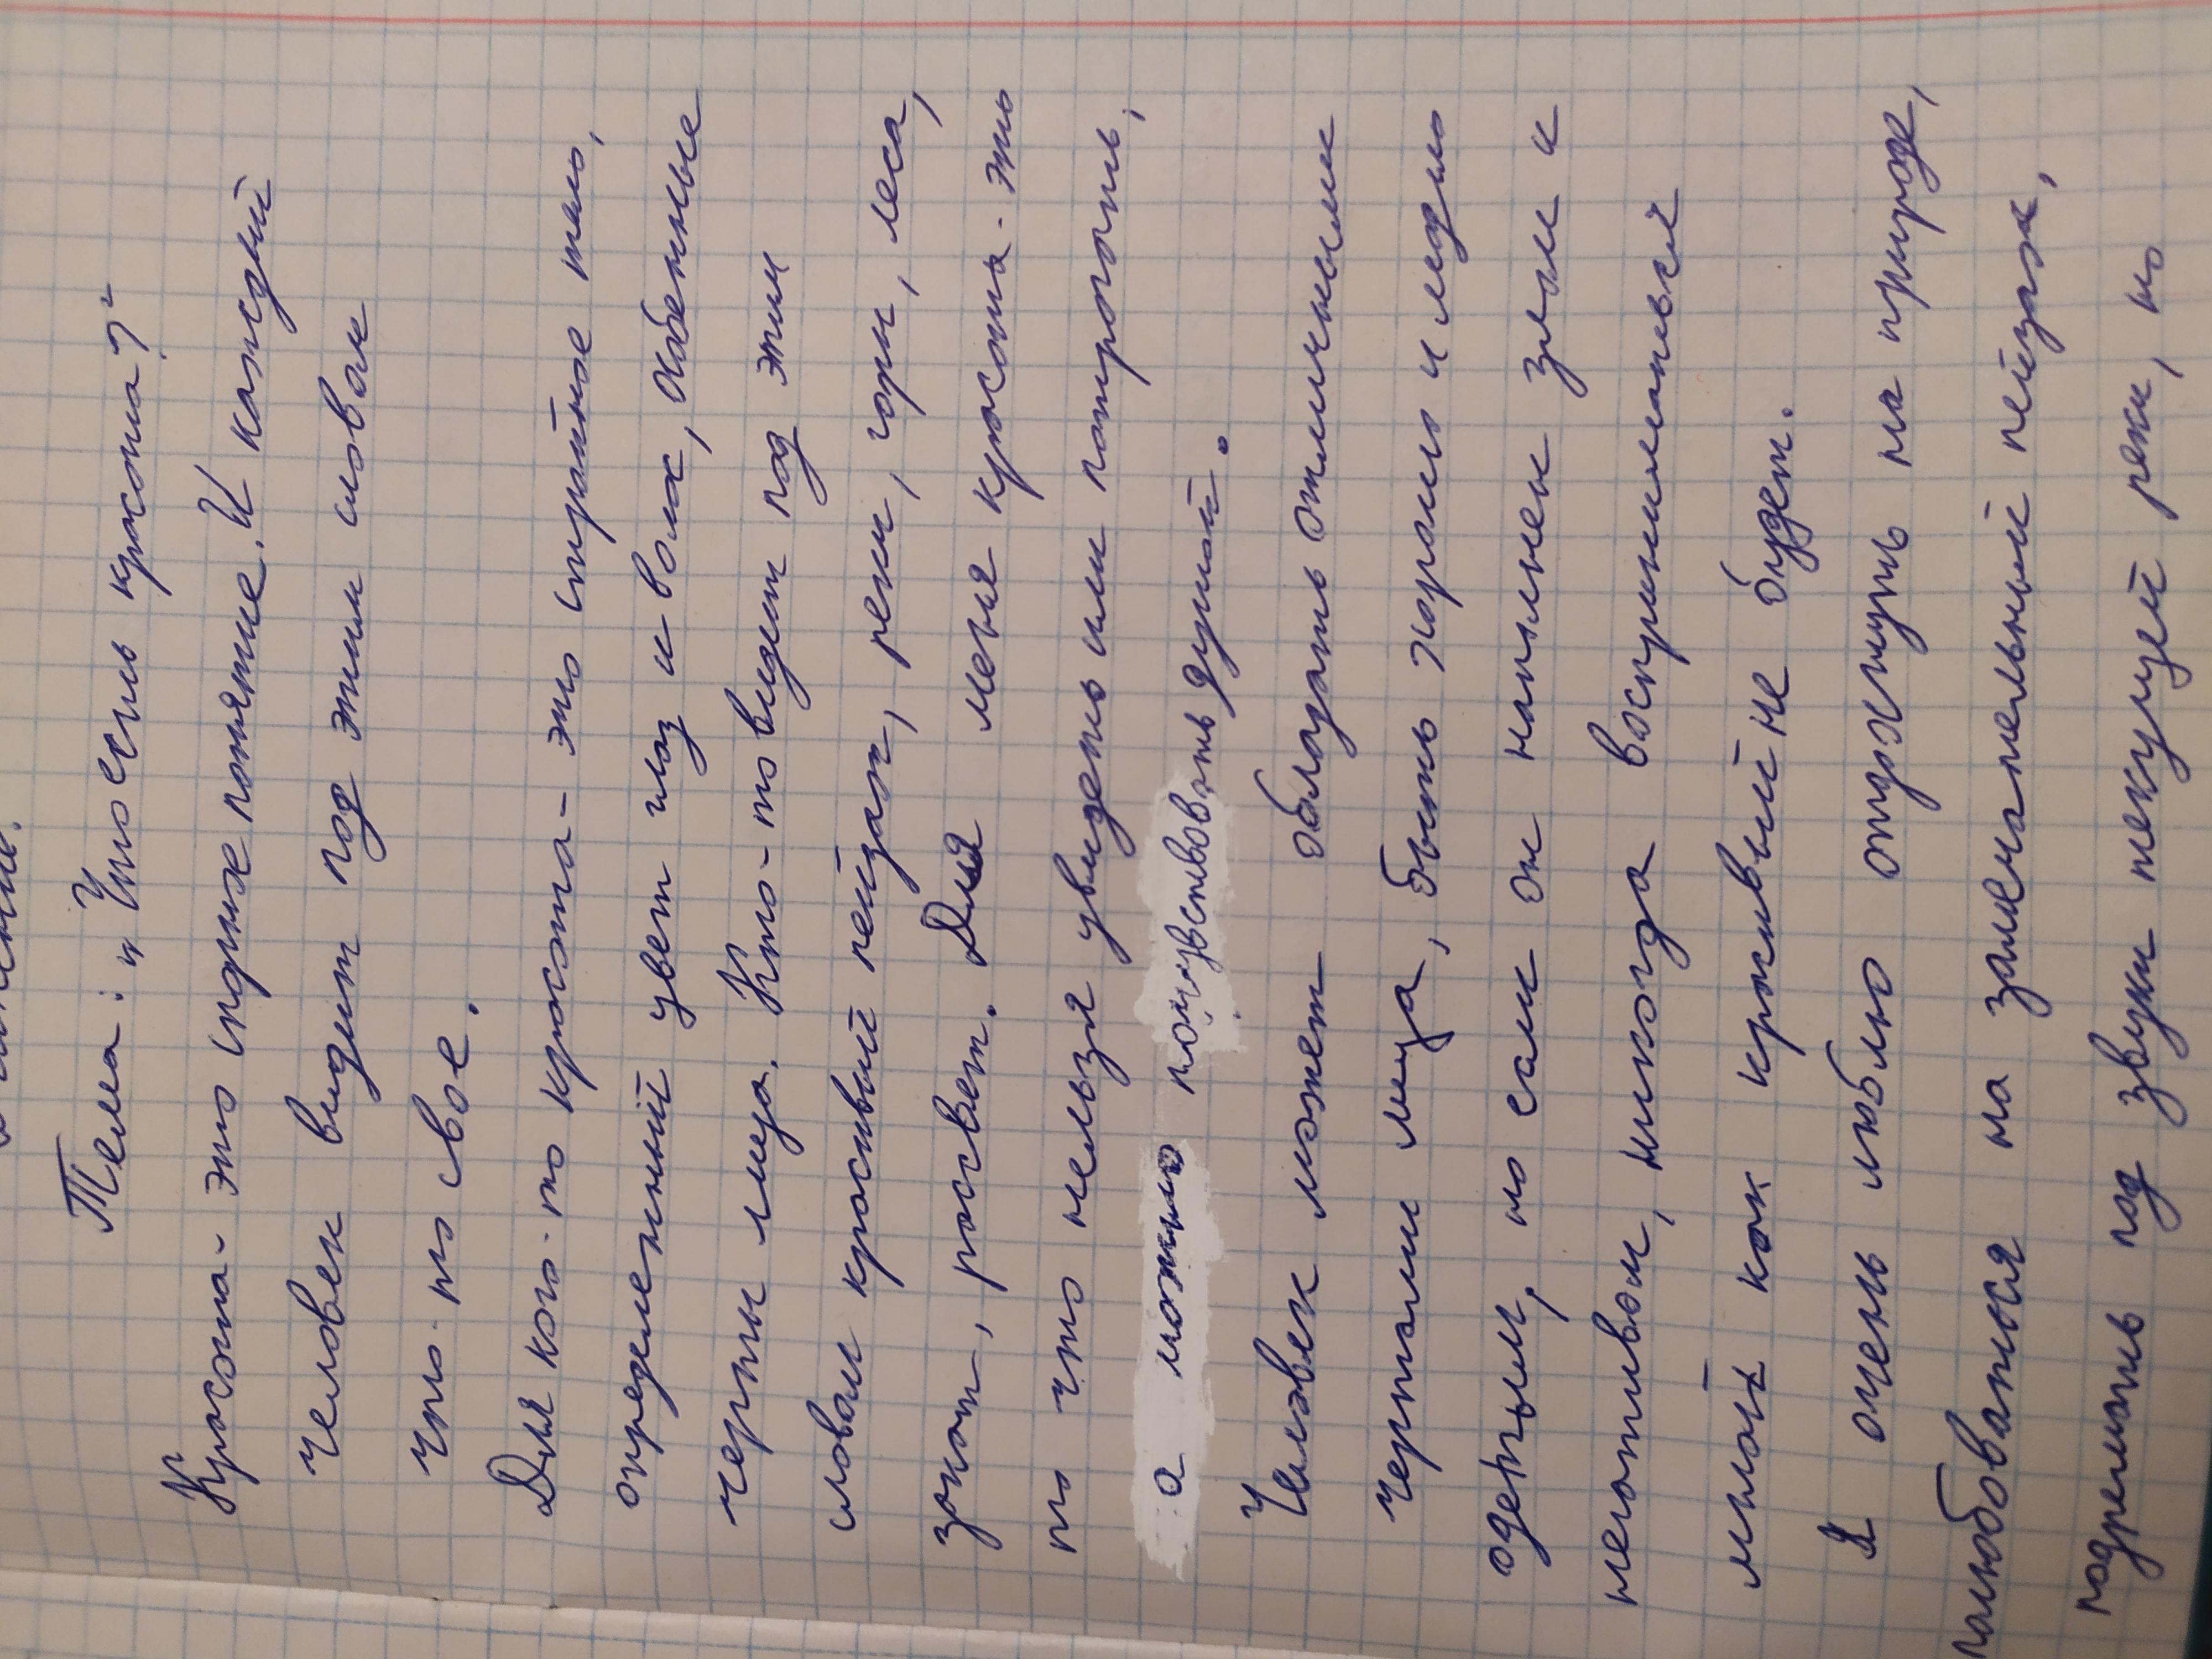 Тема: "Что есть красота?"
Красота - это спорное понятие. И каждый
человек видит под этим словом
что-то свое.
Для кого-то красота - это стройное тело,
определенный цвет глаз и волос, особенные
черты лица. Кто-то видит под этим
словом красивый пейзаж, реки, горы, леса,
закат, рассвет. Для меня красота - это
то что нельзя увидеть или потрогать,
а можно почувствовать душой.
Человек может обладать отличными
чертами лица, быть хорошо и модно
одетым, но сам он наполнен злом и
негативом, никогда восприниматься
мной как красивый не будет.
Я очень люблю отдыхать на природе,
полюбоваться на замечательный пейзаж,
подремать под звуки текущей реки, но